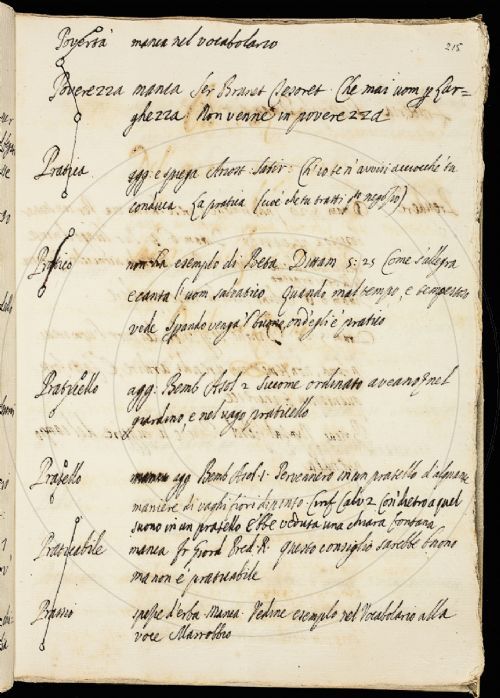 215
Povertà manca nel vocabolario
Poverezza manca Ser Brunet Tesoret. Che mai uom p lar=
ghezza Non venne in poverezza
Pratica agg: e spiega Ariost. Satir: Ch'io te n'avvisi acciocchè tu
conduca La pratica (cioè che tu tratti negozio)
Pratico non ha esempio di Poeta Dittam 5: 25 Come s'allegra
e canta l'uom salvatico Quando mal tempo, e tempestoso
vede Sperando venga 'l buono, ond'egli è pratico
Praticello agg: Bemb Asol 2 Siccome ordinato aveano nel
giardino, e nel vago praticello
Pratello manca agg Bemb Asol. 1. Pervennero in un pratello d'alquante
maniere di vaghi fiori dipinto Calv 2 Con dietro a quel
suono in un pratello Ebbe veduta una chiara fontana
Praticabile manca Fr Giord Pred R. Questo consiglio sarebbe buono
ma non è praticabile
Prassio spezie d'erba. Manca. Vedine esempio nel Vocabolario alla
voce Marrobbio